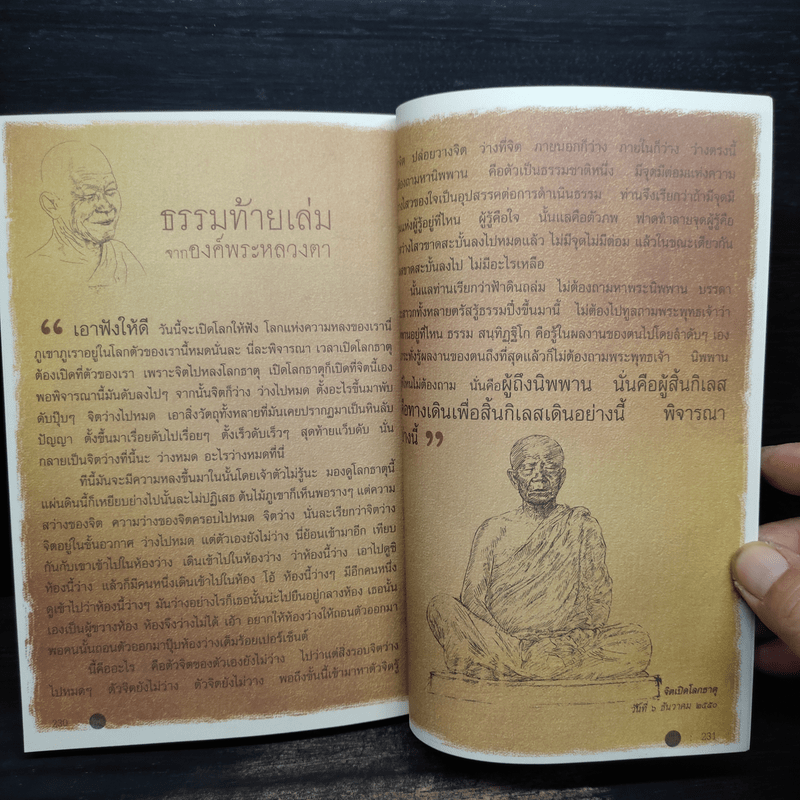 ธรรมท้ายเล่ม
จากองค์พระหลวงตา
“ เอาฟังให้ดี วันนี้จะเปิดโลกให้ฟัง โลกแห่งความหลงของเรานี้
ภูเขาภูเราอยู่ในโลกตัวของเรานี้หมดนั่นละ นี่ละพิจารณา เวลาเปิดโลกธาตุ
ต้องเปิดที่ตัวของเรา เพราะจิตไปหลงโลกธาตุ เปิดโลกธาตุก็เปิดที่จิตนี้เอง
พอพิจารณานี้มันดับลงไปๆ จากนั้นจิตก็ว่าง ว่างไปหมด ตั้งอะไรขึ้นมาพับ
ดับปุ๊บๆ จิตว่างไปหมด เอาสิ่งวัตถุทั้งหลายที่มันเคยปรากฏมาเป็นหินลับ
ปัญญา ตั้งขึ้นมาเรื่อยดับไปเรื่อยๆ ตั้งเร็วดับเร็วๆ สุดท้ายแว็บดับ นั่น
กลายเป็นจิตว่างที่นี้นะ ว่างหมด อะไรว่างหมดที่นี่
ที่นี้มันจะมีความหลงขึ้นมาในนั้นโดยเจ้าตัวไม่รู้นะ มองดูโลกธาตุนี้
แผ่นดินนี้ก็เหยียบย่างไปนั้นละไม่ปฏิเสธ ต้นไม้ภูเขาก็เห็นพอรางๆ แต่ความ
สว่างของจิต ความว่างของจิตครอบไปหมด จิตว่าง นั่นละเรียกว่าจิตว่าง
จิตอยู่ในชั้นอวกาศ ว่างไปหมด แต่ตัวเองยังไม่ว่าง นี่ย้อนเข้ามาอีก เทียบ
กันกับเขาเข้าไปในห้องว่าง เดินเข้าไปในห้องว่าง ว่าห้องนี้ว่าง เอาไปดูซิ
ห้องนี้ว่าง แล้วก็มีคนหนึ่งเดินเข้าไปในห้อง โอ้ ห้องนี้ว่างๆ มีอีกคนหนึ่ง
ดูเข้าไปว่าห้องนี้ว่างๆ มันว่างอย่างไรก็เธอนั้นน่ะไปยืนอยู่กลางห้อง เธอนั้น
เองเป็นผู้ขวางห้อง ห้องจึงว่างไม่ได้ เอ้า อยากให้ห้องว่างให้ถอนตัวออกมา
พอคนนั้นถอนตัวออกมาปุ๊บห้องว่างเต็มร้อยเปอร์เซ็นต์
นี้คืออะไร คือตัวจิตของตัวเองยังไม่ว่าง ไปว่าแต่สิ่งรอบจิตว่าง
ไปหมดๆ ตัวจิตยังไม่ว่าง ตัวจิตยังไม่วาง พอถึงขั้นนี้เข้ามาหาตัวจิตรู้
230
จิต ปล่อยวางจิต ว่างที่จิต ภายนอกก็ว่าง ภายในก็ว่าง ว่างตรงนี้
ต้องถามหานิพพาน คือตัวเป็นธรรมชาติหนึ่ง มีจุดมีต่อมแห่งความ
ไสวของใจเป็นอุปสรรคต่อการดำเนินธรรม ท่านจึงเรียกว่าถ้ามีจุดมี
แห่งผู้รู้อยู่ที่ไหน ผู้รู้คือใจ นั้นแลคือตัวภพ ฟาดทำลายจุดผู้รู้คือ
ว่างไสวขาดสะบั้นลงไปหมดแล้ว ไม่มีจุดไม่มีต่อม แล้วในขณะเดียวกัน
ขาดสะบั้นลงไป ไม่มีอะไรเหลือ
นั้นแลท่านเรียกว่าฟ้าดินถล่ม ไม่ต้องถามหาพระนิพพาน บรรดา
สาวกทั้งหลายตรัสรู้ธรรมปึ๋งขึ้นมานี้ ไม่ต้องไปทูลถามพระพุทธเจ้าว่า
พานอยู่ที่ไหน ธรรม สนฺทิฏฺฐิโก คือรู้ในผลงานของตนไปโดยลำดับๆ เอง
ระทั่งรู้ผลงานของตนถึงที่สุดแล้วก็ไม่ต้องถามพระพุทธเจ้า นิพพาน
ที่ไหนไม่ต้องถาม นั่นคือผู้ถึงนิพพาน นั่นคือผู้สิ้นกิเลส
คือทางเดินเพื่อสิ้นกิเลสเดินอย่างนี้ พิจารณา
ย่างนี้ ”
จิตเปิดโลกธาตุ
วันที่ ๖ ธันวาคม ๒๕๕๐
231